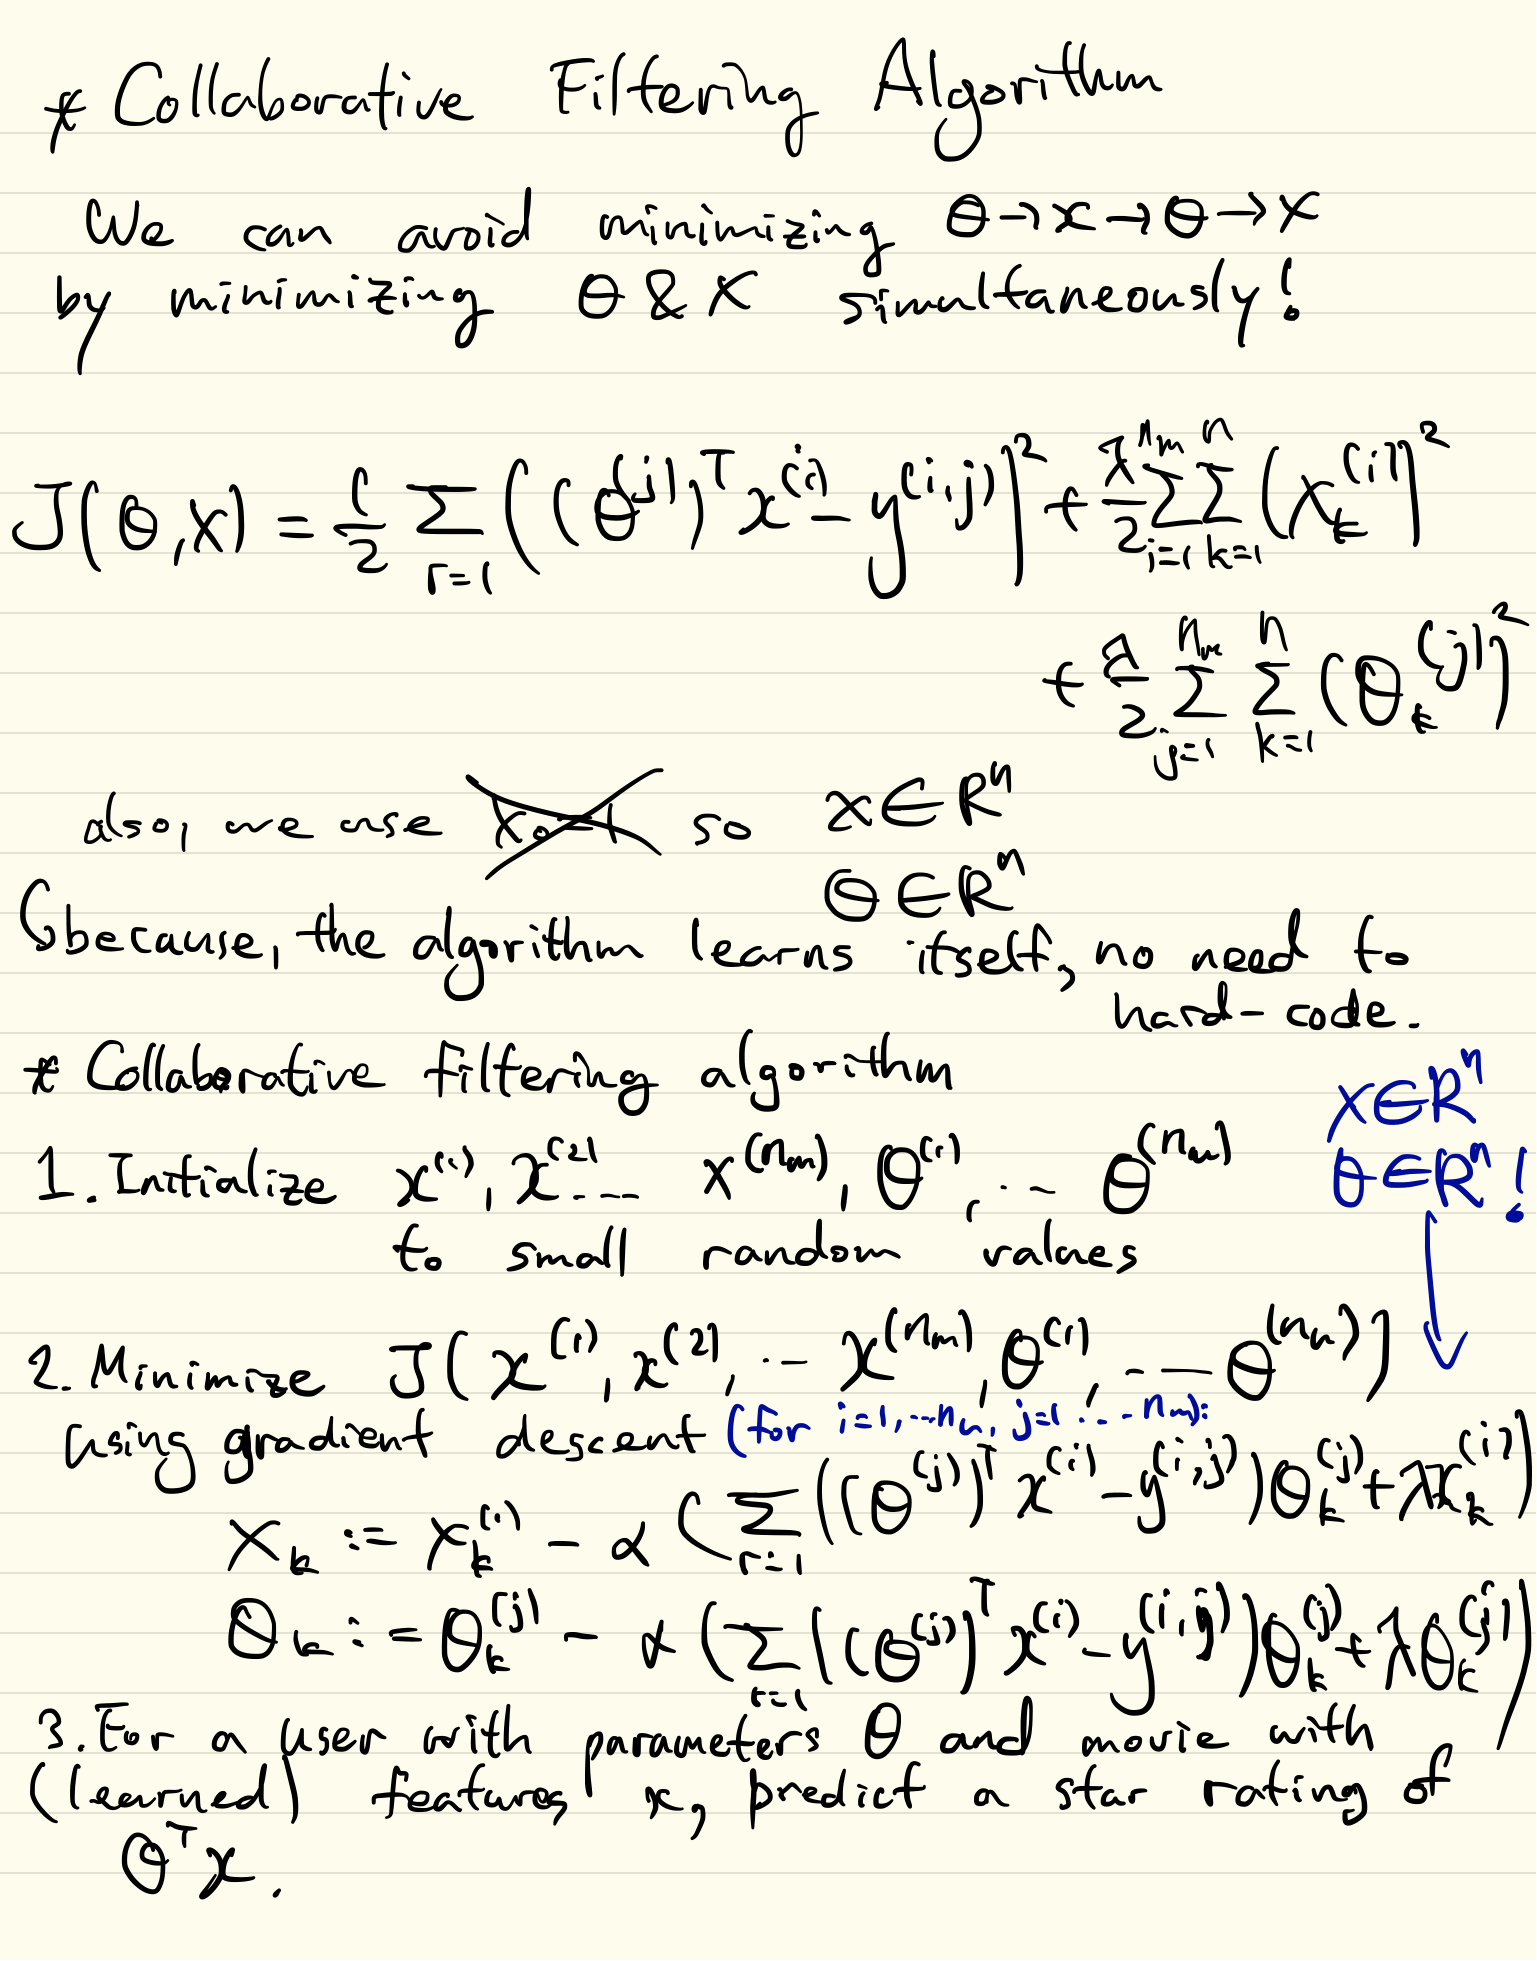 * Collaborative Filtering Algorithm
We can avoid minimizing θ→x→θ→x
by minimizing θ & x simultaneously!
J(θ,x) = 1/2 Σ_{r=1} ((θ^(j))^T x^(i) - y^(i,j))^2 + λ/2 Σ_{i=1}^{n_m} Σ_{k=1}^{n} (x_k^(i))^2
+ λ/2 Σ_{j=1}^{n_m} Σ_{k=1}^{n} (θ_k^(j))^2
also, we use x_0=1 so x∈R^n
θ∈R^n
because, the algorithm learns itself, no need to
hard-code.
* Collaborative filtering algorithm
x∈R^n
θ∈R^n!
1. Initialize x^(1), x^(2)... x^(n_m), θ^(1), ... θ^(n_u)
to small random values
2. Minimize J(x^(1), x^(2), ... x^(n_m), θ^(1), ... θ^(n_u))
using gradient descent (for i=1,...n_u, j=1...n_m):
x_k := x_k^(i) - α (Σ_{r=1} ((θ^(j))^T x^(i) - y^(i,j)) θ_k^(j) + λx_k^(i))
θ_k := θ_k^(j) - α (Σ_{r=1} ((θ^(j))^T x^(i) - y^(i,j)) θ_k^(j) + λθ_k^(j))
3. For a user with parameters θ and movie with
(learned) features x, predict a star rating of
θ^T x.